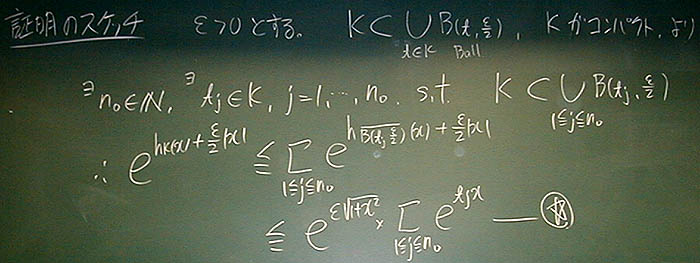 証明のスケッチ ε>0とする. K⊂∪_{t∈K} B(t, ε/2), Kがコンパクト, より
Ball
∃n₀∈ℕ, ∃t_j∈K, j=1,…,n₀. s.t. K⊂∪_{1≦j≦n₀} B(t_j, ε/2)
∴ e^{h_K(x)+ε/2|x|} ≦ Σ_{1≦j≦n₀} e^{h_{\overline{B(t_j, ε/2)}}(x)+ε/2|x|}
≦ e^{ε√(1+x²)} × Σ_{1≦j≦n₀} e^{t_j x} —